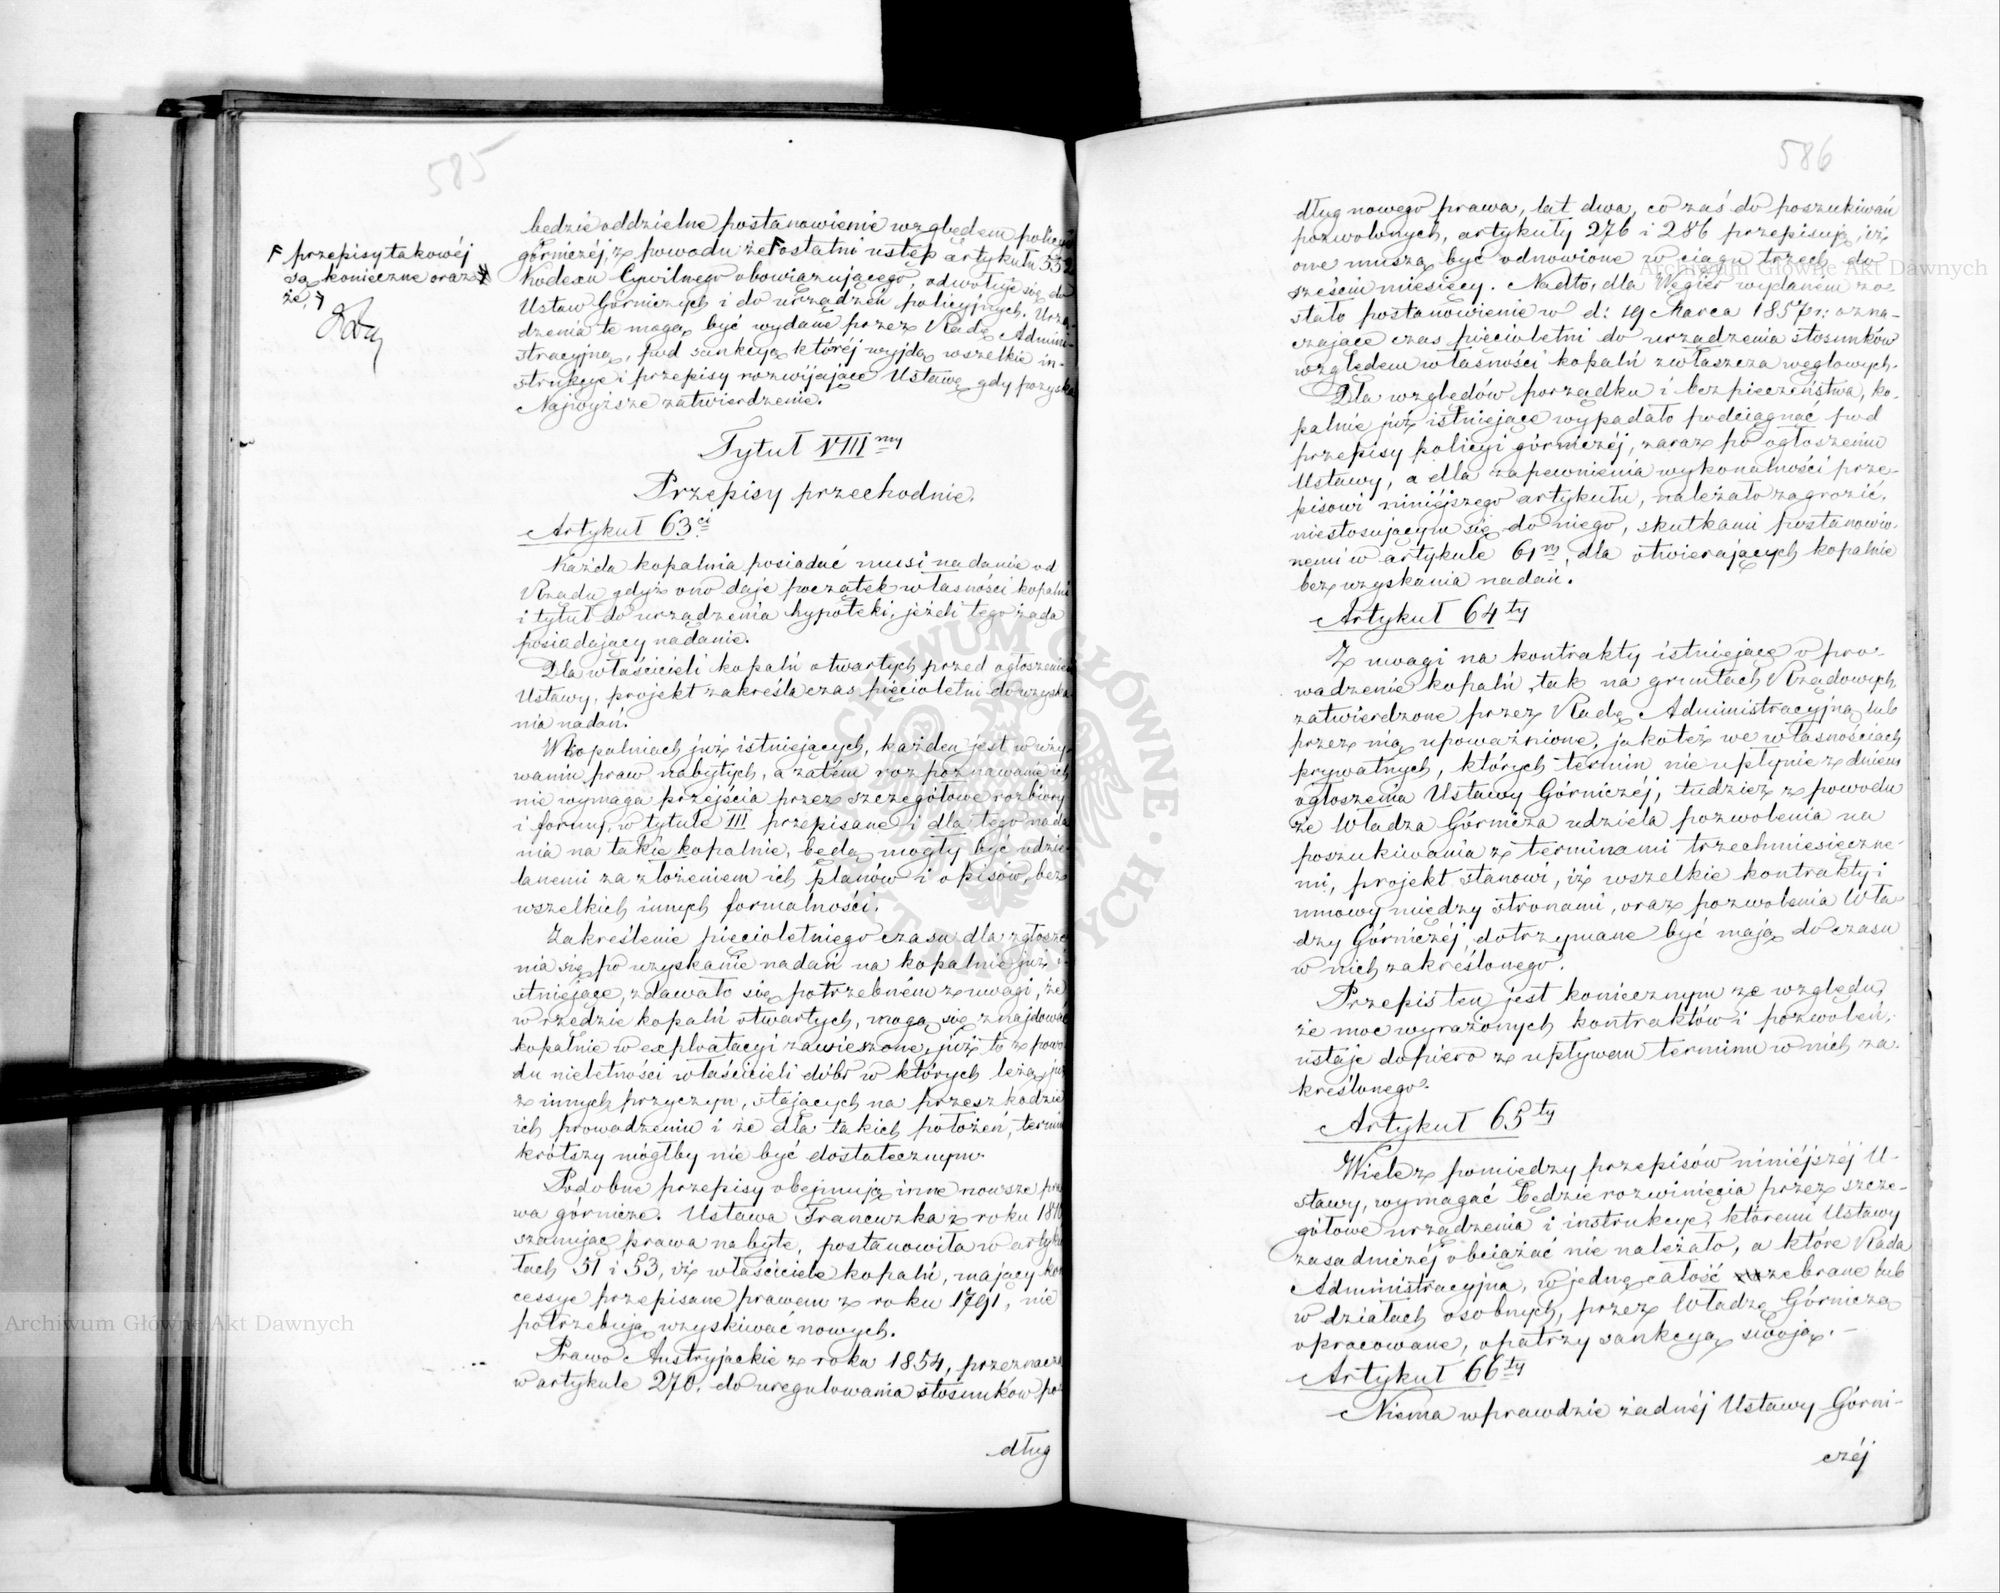 585
będzie oddzielne postanowienie względem policyi
górniczéj, z powodu że F ostatni ustęp artykułu 552
Kodexu Cywilnego obowiązującego, odwołuje się do
Ustaw Górniczych i do urządzeń policyjnych. Urzą-
dzenia te mogą być wydane przez Radę Admini-
stracyjną, pod sankcyą któréj wyjdą wszelkie in-
strukcye i przepisy rozwijające Ustawę, gdy pozyska
Najwyższe zatwierdzenie.
F przepisy takowéj
są konieczne oraz
że,
Tytuł VIII my
Przepisy przechodnie.
Artykuł 63 ci
Każda kopalnia posiadać musi nadanie od
Rządu gdyż ono daje początek własności kopalni
i tytuł do urządzenia hypoteki, jeżeli tego żąda
posiadający nadanie.
Dla właścicieli kopalń otwartych przed ogłoszeniem
Ustawy, projekt zakreśla czas pięcioletni do uzyska
nia nadań.
W kopalniach już istniejących, każden jest w uży-
waniu praw nabytych, a zatém rozpoznawanie ich
nie wymaga przejścia przez szczegółowe rozbiory
i formy, w tytule III przepisane i dla tego nada
nia na takie kopalnie, będą mogły być udzie
lanemi za złożeniem ich planów i opisów, bez
wszelkich innych formalności.
Zakreślenie pięcioletniego czasu dla zgłosze
nia się po uzyskanie nadań na kopalnie już i-
stniejące, zdawało się potrzebném z uwagi, że
w rzędzie kopalń otwartych, mogą się znajdować
kopalnie w exploatacyi zawieszone, już to z powo
du nieletności właścicieli dóbr w których leżą, już
z innych przyczyn, stających na przeszkodzie
ich prowadzeniu i że dla takich położeń, termin
krótszy mógłby nie być dostatecznym.
Podobne przepisy obejmują inne nowsze pra
wa górnicze. Ustawa Francuzka z roku 1810
szanując prawa nabyte, postanowiła w artyku
łach 51 i 53, iż właściciele kopalń, mający kon
cessye przepisane prawem z roku 1791, nie
potrzebują uzyskiwać nowych.
Prawo Austryjackie z roku 1854, przeznacza
w artykule 270. do uregulowania stosunków po-
dług
586
dług nowego prawa, lat dwa, co zaś do poszukiwań
pozwolonych, artykuły 276 i 286 przepisują, iż
one muszą być odnowione w ciągu trzech do
sześciu miesięcy. Nadto, dla Węgier wydanem zo-
stało postanowienie w d: 19 Marca 1857 r: ozna-
czające czas pięcioletni do urządzenia stosunków
względem własności kopalń zwłaszcza węglowych.
Dla względów porządku i bezpieczeństwa, ko-
palnie już istniejące wypadało podciągnąć pod
przepisy policyi górniczéj, zaraz po ogłoszeniu
Ustawy, a dla zapewnienia wykonalności prze-
pisowi niniéjszego artykułu, należało zagrozić,
niestosującym się do niego, skutkami postanowio-
nemi w artykule 61 m, dla otwierających kopalnie
bez uzyskania nadań.
Artykuł 64 ty
Z uwagi na kontrakty istniejące o pro-
wadzenie kopalń, tak na gruntach Rządowych
zatwierdzone przez Radę Administracyjną lub
przez nią upoważnione, jakoteż we własnościach
prywatnych, których termin nie upłynie z dniem
ogłoszenia Ustawy Górniczéj, tudzież z powodu
że Władza Górnicza udziela pozwolenia na
poszukiwania z terminami trzechmiesięczne-
mi, projekt stanowi, iż wszelkie kontrakty i
umowy między stronami, oraz pozwolenia Wła
dzy Górniczéj, dotrzymane być mają do czasu
w nich zakreślonego.
Przepis ten jest koniecznym ze względu,
że moc wyrażonych kontraktów i pozwoleń,
ustaje dopiero z upływem terminu w nich za-
kreślonego.
Artykuł 65 ty
Wiele z pomiędzy przepisów niniéjszéj U-
stawy, wymagać będzie rozwinięcia przez szcze-
gółowe urządzenia i instrukcye, któremi Ustawy
zasadniczéj obciążać nie należało, a które Rada
Administracyjna, w jednę całość zebrane lub
w działach osobnych, przez Władzę Górniczą
opracowane, opatrzy sankcyą swoją. –
Artykuł 66 ty
Niema wprawdzie żadnéj Ustawy Górni-
czéj
Archiwum Główne Akt Dawnych
Archiwum Główne Akt Dawnych
ARCHIWUM GŁÓWNE AKT DAWNYCH